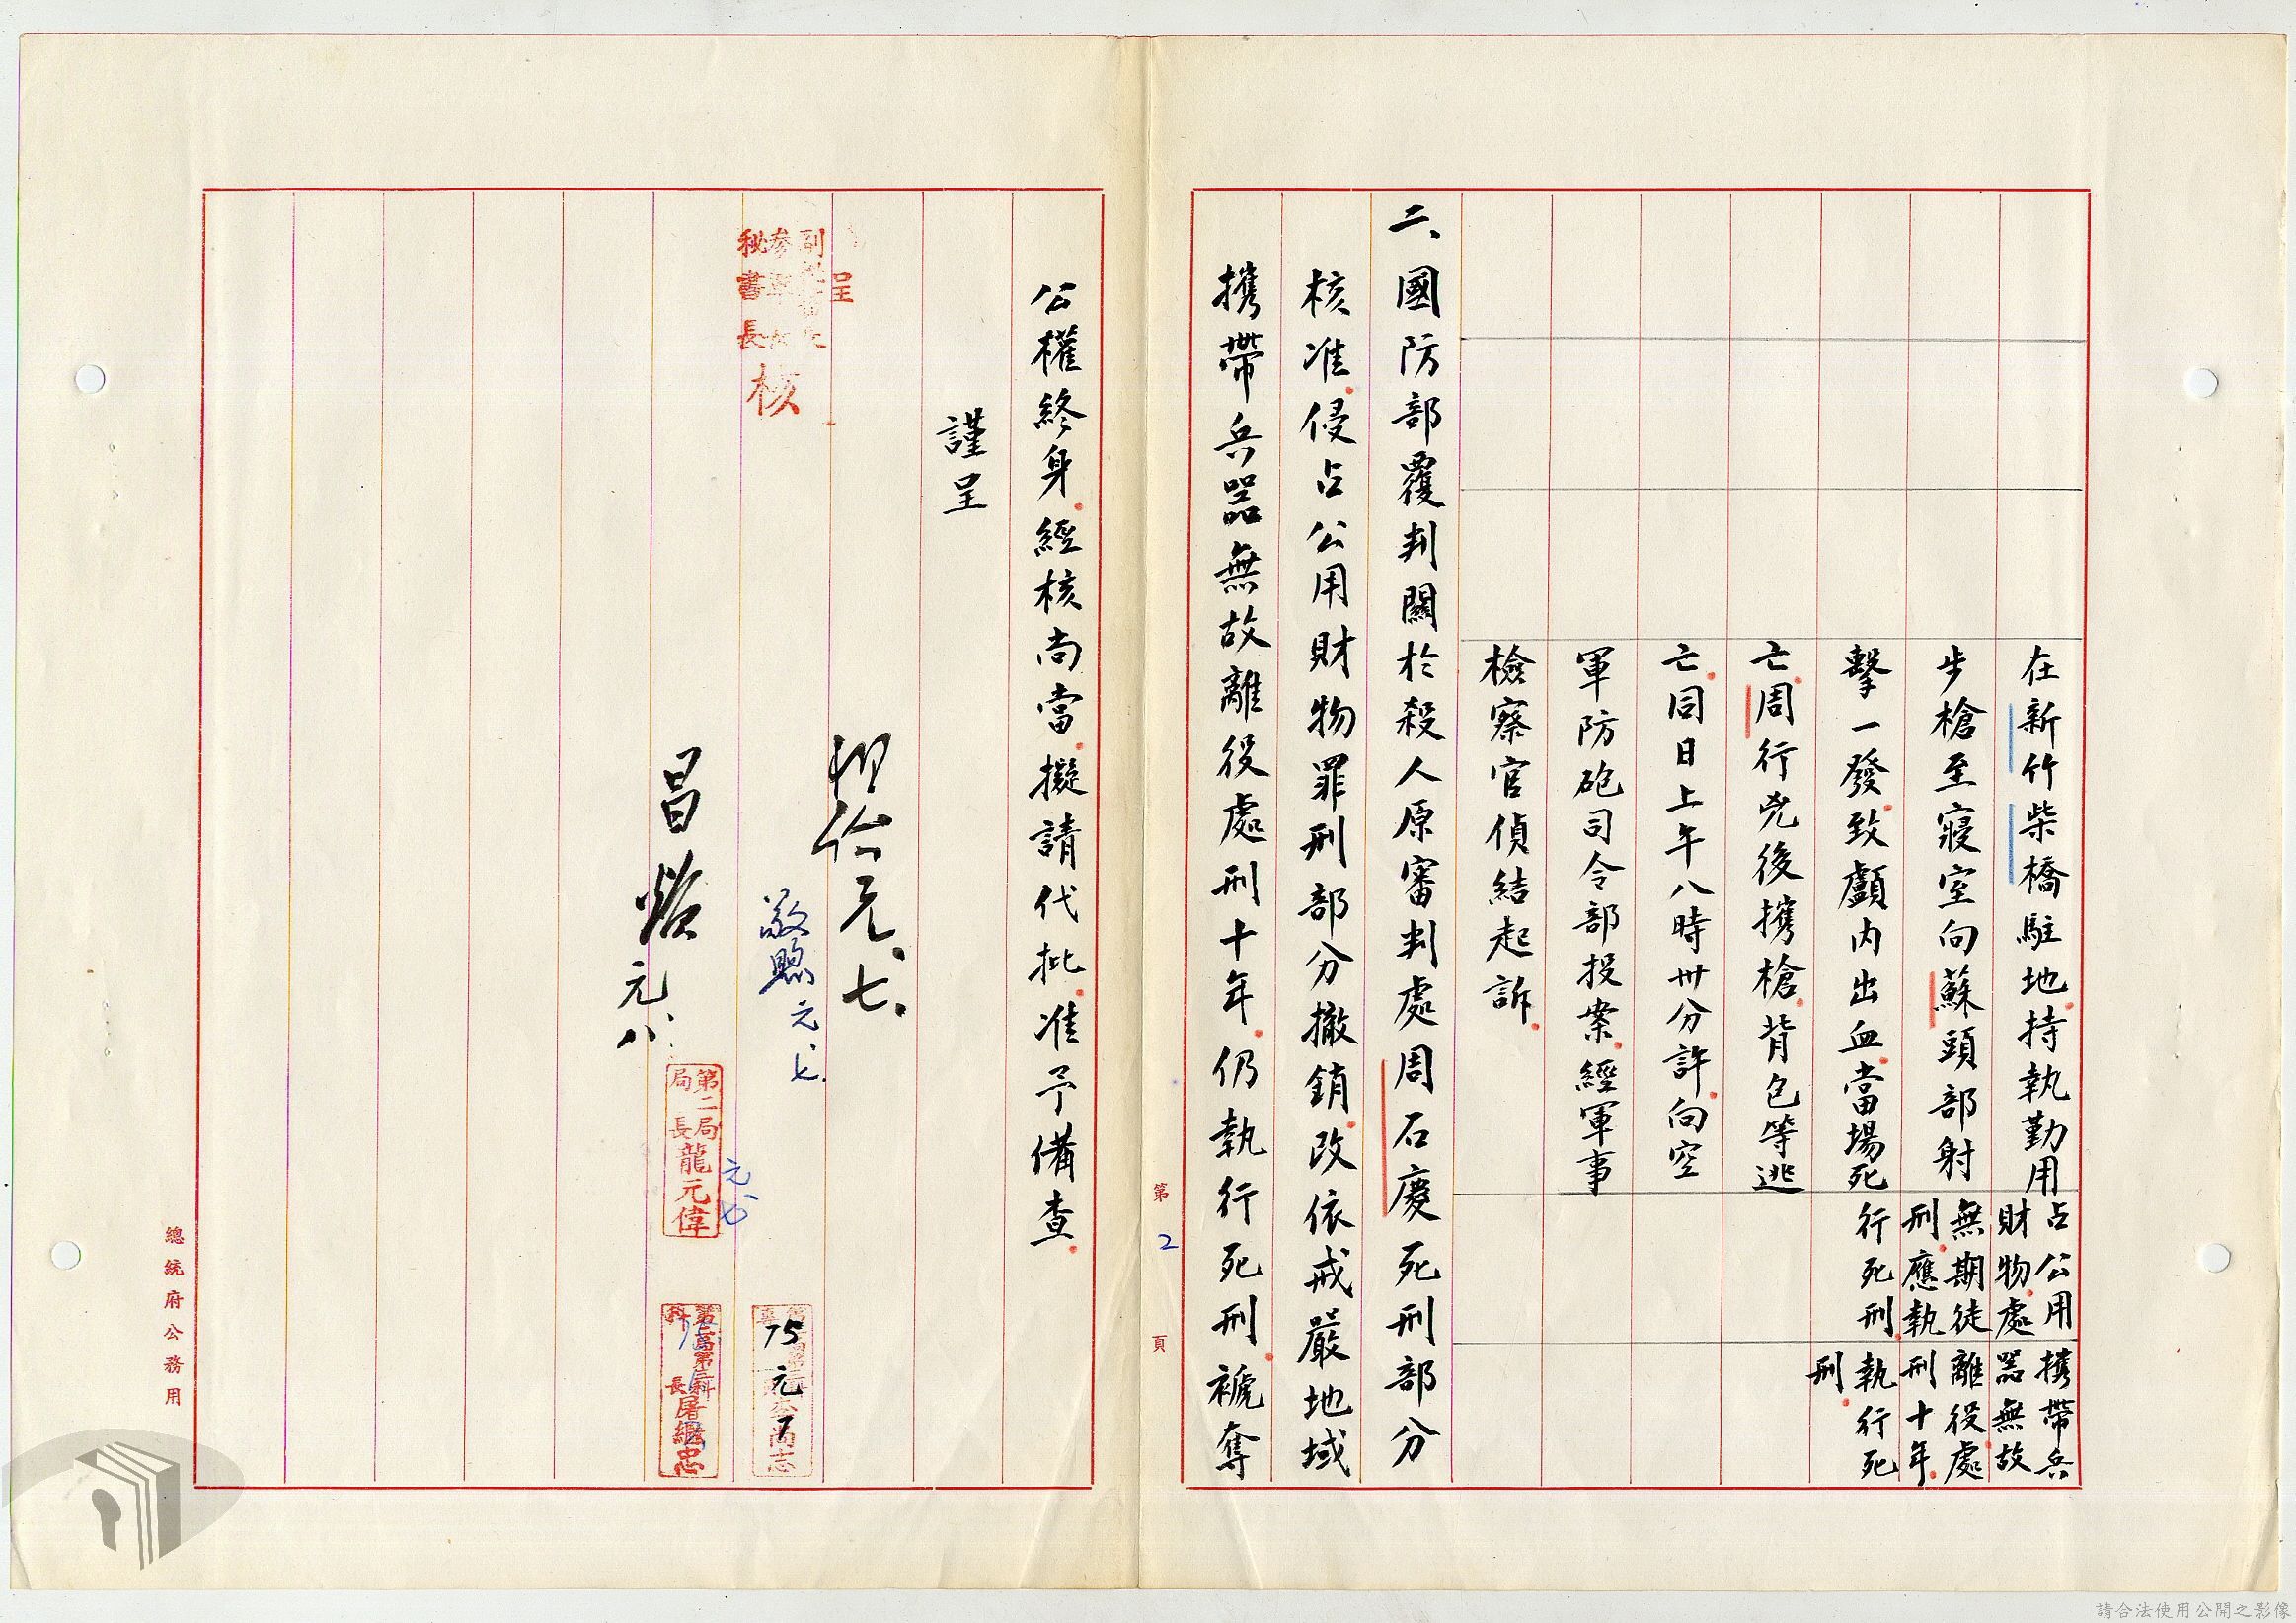 在新竹柴橋駐地持執勤用
步槍至寢室向蘇頭部射
擊一發致顱內出血當場死
亡周行兇後攜槍背包等逃
亡同日上午八時卅分許向空
軍防砲司令部投案經軍事
檢察官偵結起訴
占公用
財物處
無期徒
刑應執
行死刑
攜帶兵
器無故
離役處
刑十年
執行死
刑
二、國防部覆判關於殺人原審判處周石慶死刑部分
核准侵占公用財物罪刑部分撤銷改依戒嚴地域
攜帶兵器無故離役處刑十年仍執行死刑褫奪
第2頁
公權終身經核尚當擬請代批准予備查
謹呈
呈
秘書長
核
元、七、
元、七、
元、八、
第二局局長龍元偉
元、七
75元7
第二局第三科科長屠繼忠
總統府公務用
請合法使用公開之影像